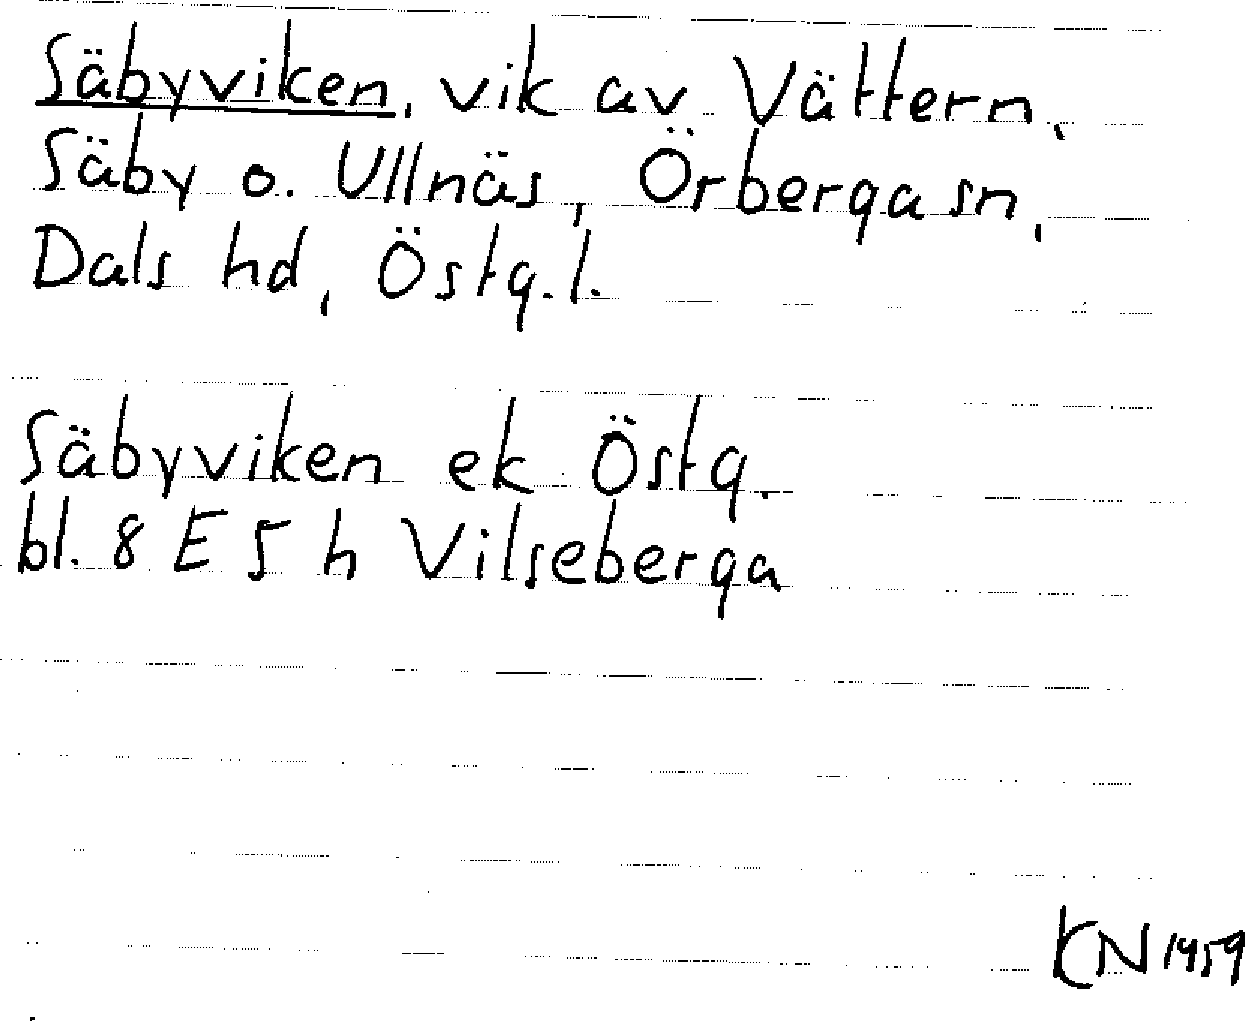 Säbyviken, vik av Vättern,
Säby o. Ullnäs, Örberga sn,
Dals hd, Östg. l.
Säbyviken ek Östg.
bl. 8 E 5 h Vilseberga
KN 1959